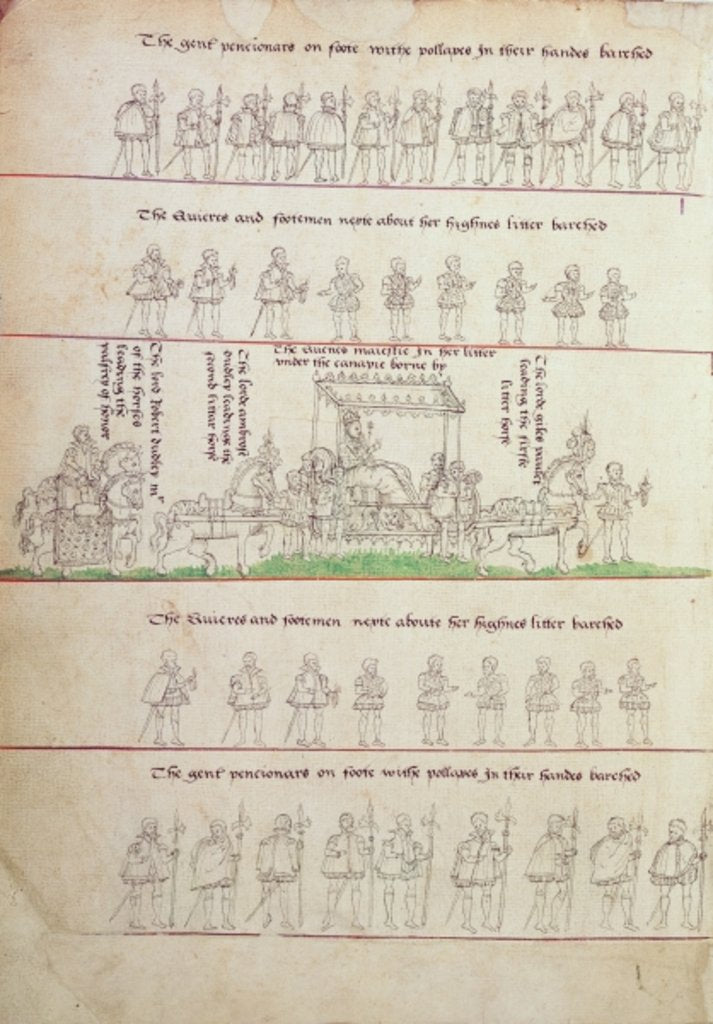 The gent pencionars on foote withe pollaxes In their handes barehed
The Quieres and footemen nexte about her highnes litter barehed
The lord Robert dudley mr
of the horses
leading the
palfrey of honor
The lorde ambrose
dudley leadinge the
second littar horse
The Quenes maiestie In her litter
vnder the canapie borne by
The lorde giles paulet
leading the firste
litter horse
The Quieres and footemen nexte aboute her highnes litter barehed
The gent pencionars on foote withe pollaxes In their handes barehed